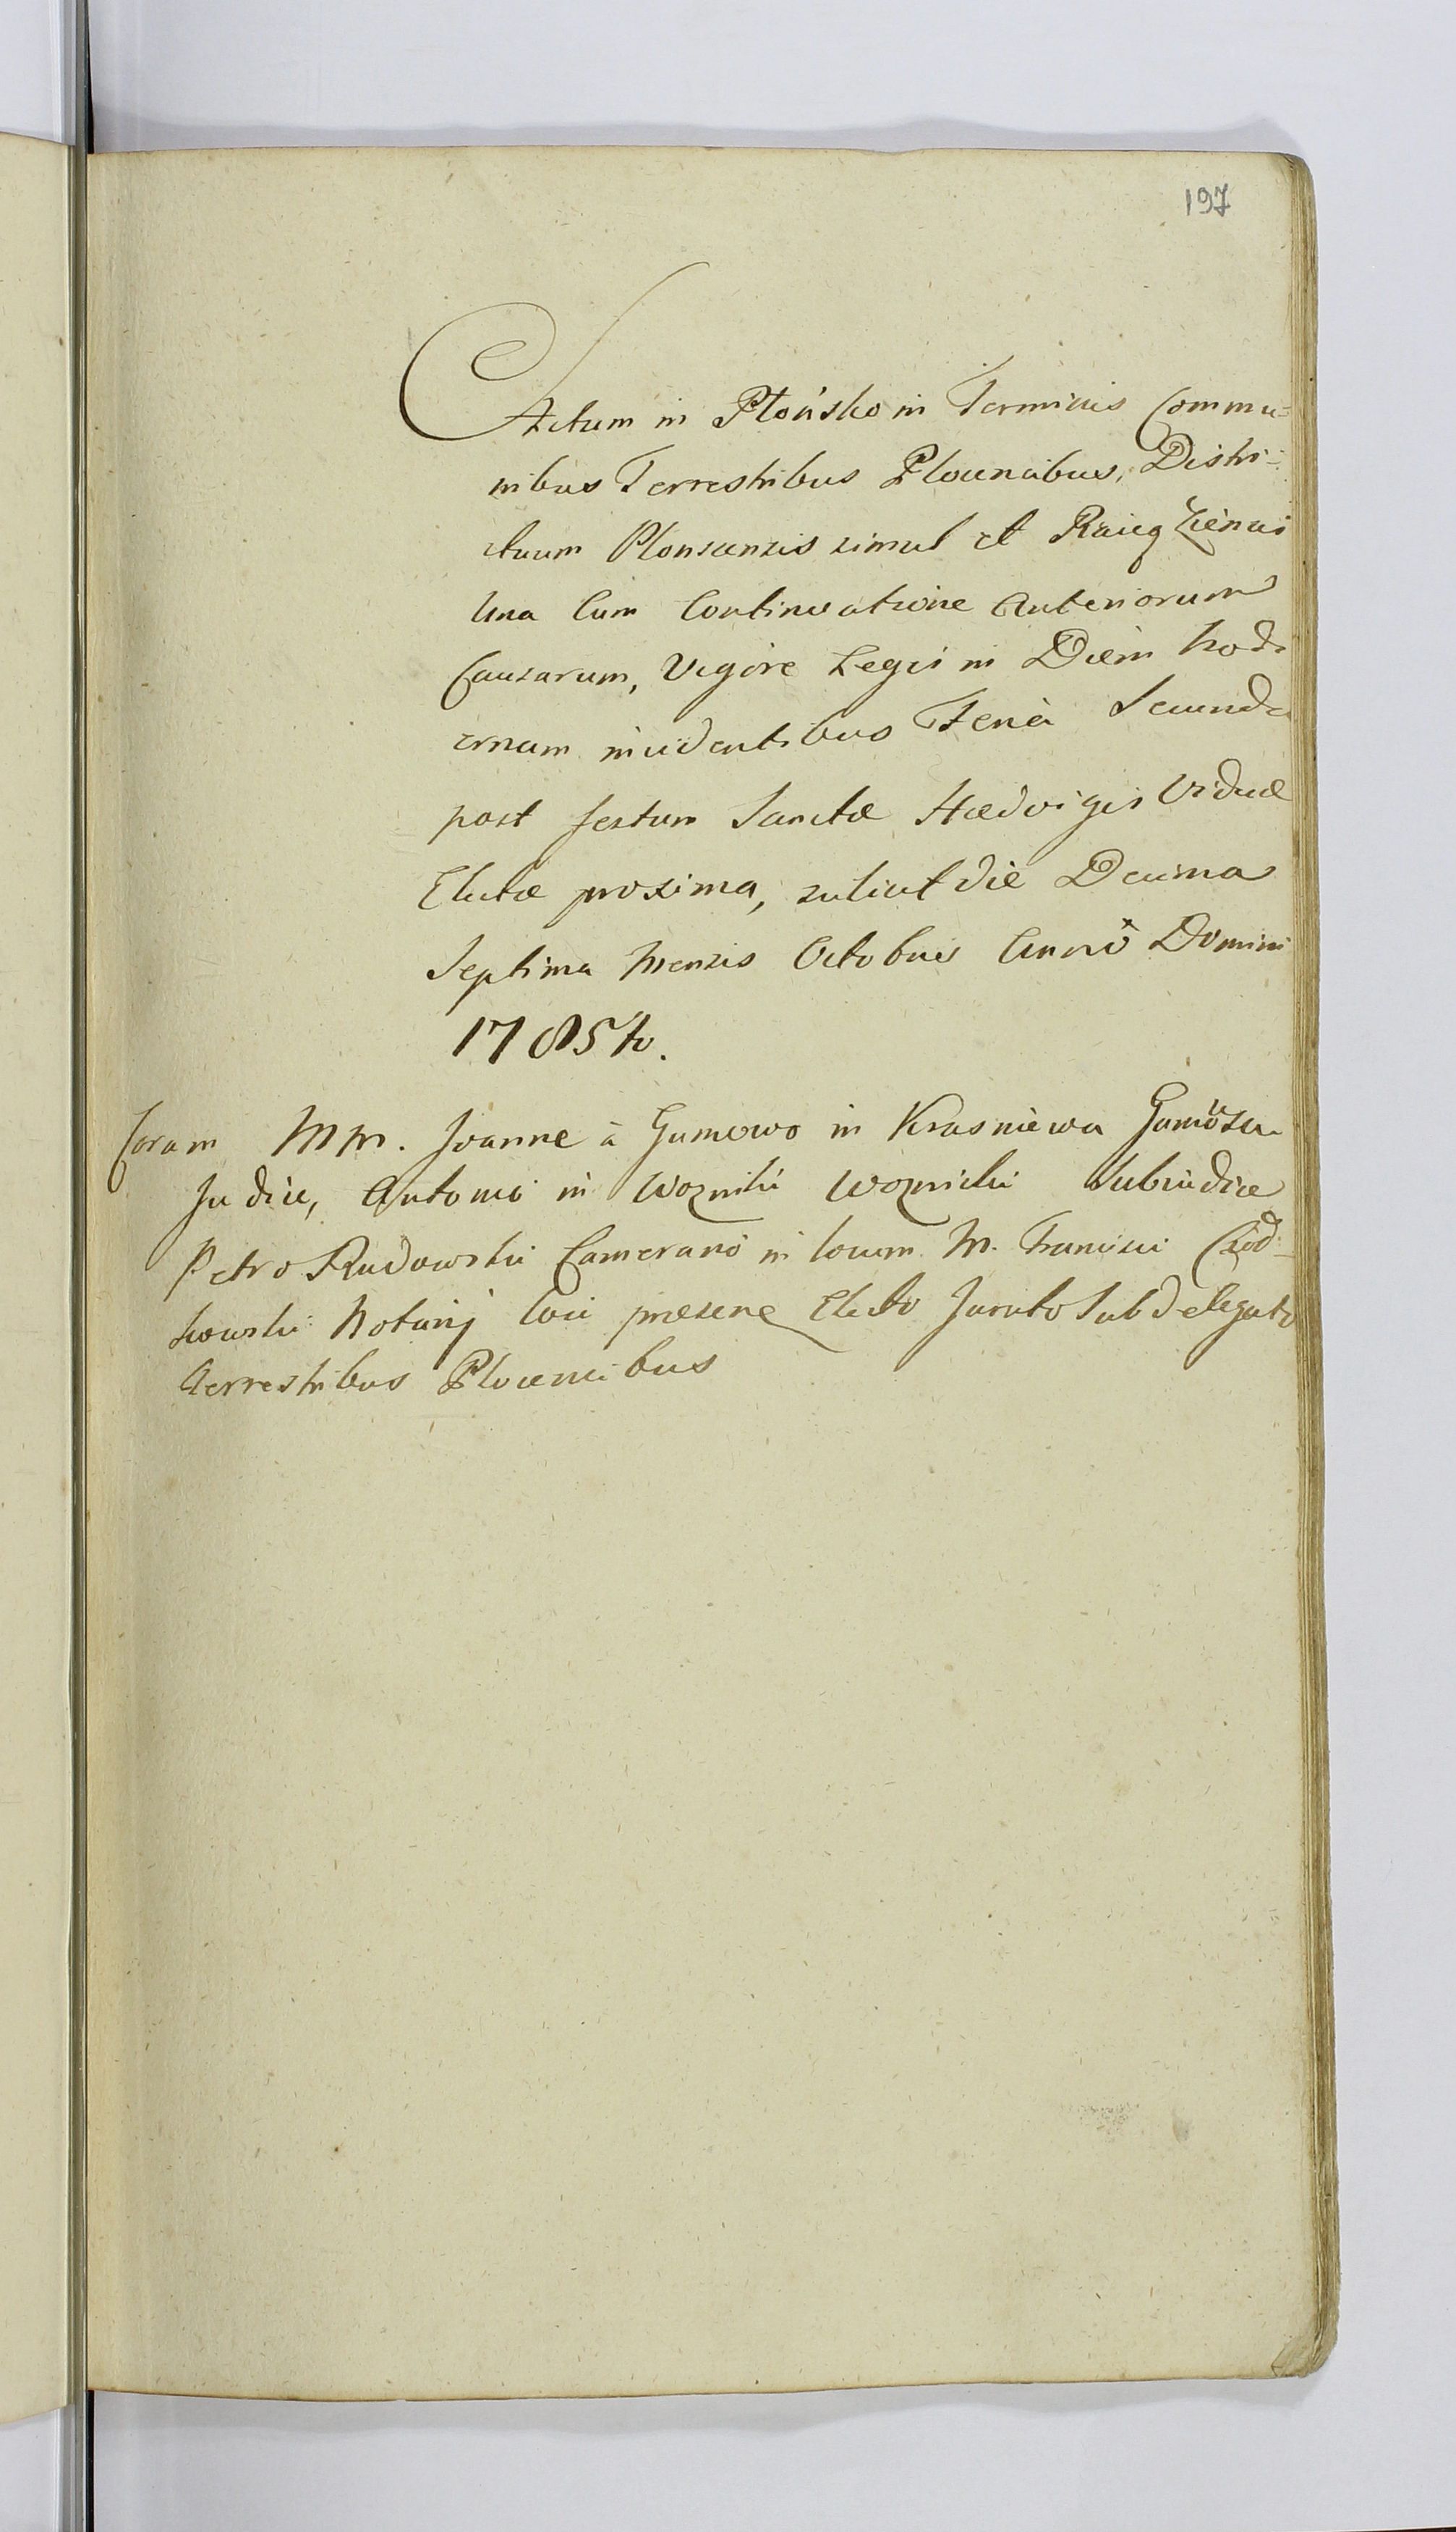 197
Actum in Płońsko in Terminis Commu=
nibus Terrestribus Plocensibus, Distri=
ctuum Plonscensis simul et Raciążiensis
Una Cum Continuatione Anteriorum
Causarum, Vigore Legis in Diem hodi
ernam incidentibus Feria Secunda
post festum Sanctæ Hædvigis Viduæ
Electæ proxima, scilicet die Decima
Septima Mensis Octobris Annô Domini
1785to.
Coram MM. Joanne à Gumowo in Krasniewa
Judice, Antonio in Wozniki Woznicki Subiudice
Petro Rudowski Camerario in locum M. Francisci
Notarij loci præsens Electo Jurato Subdelegato
Terrestribus Plocensibus